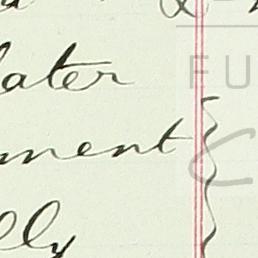 later
ment
lly
FU